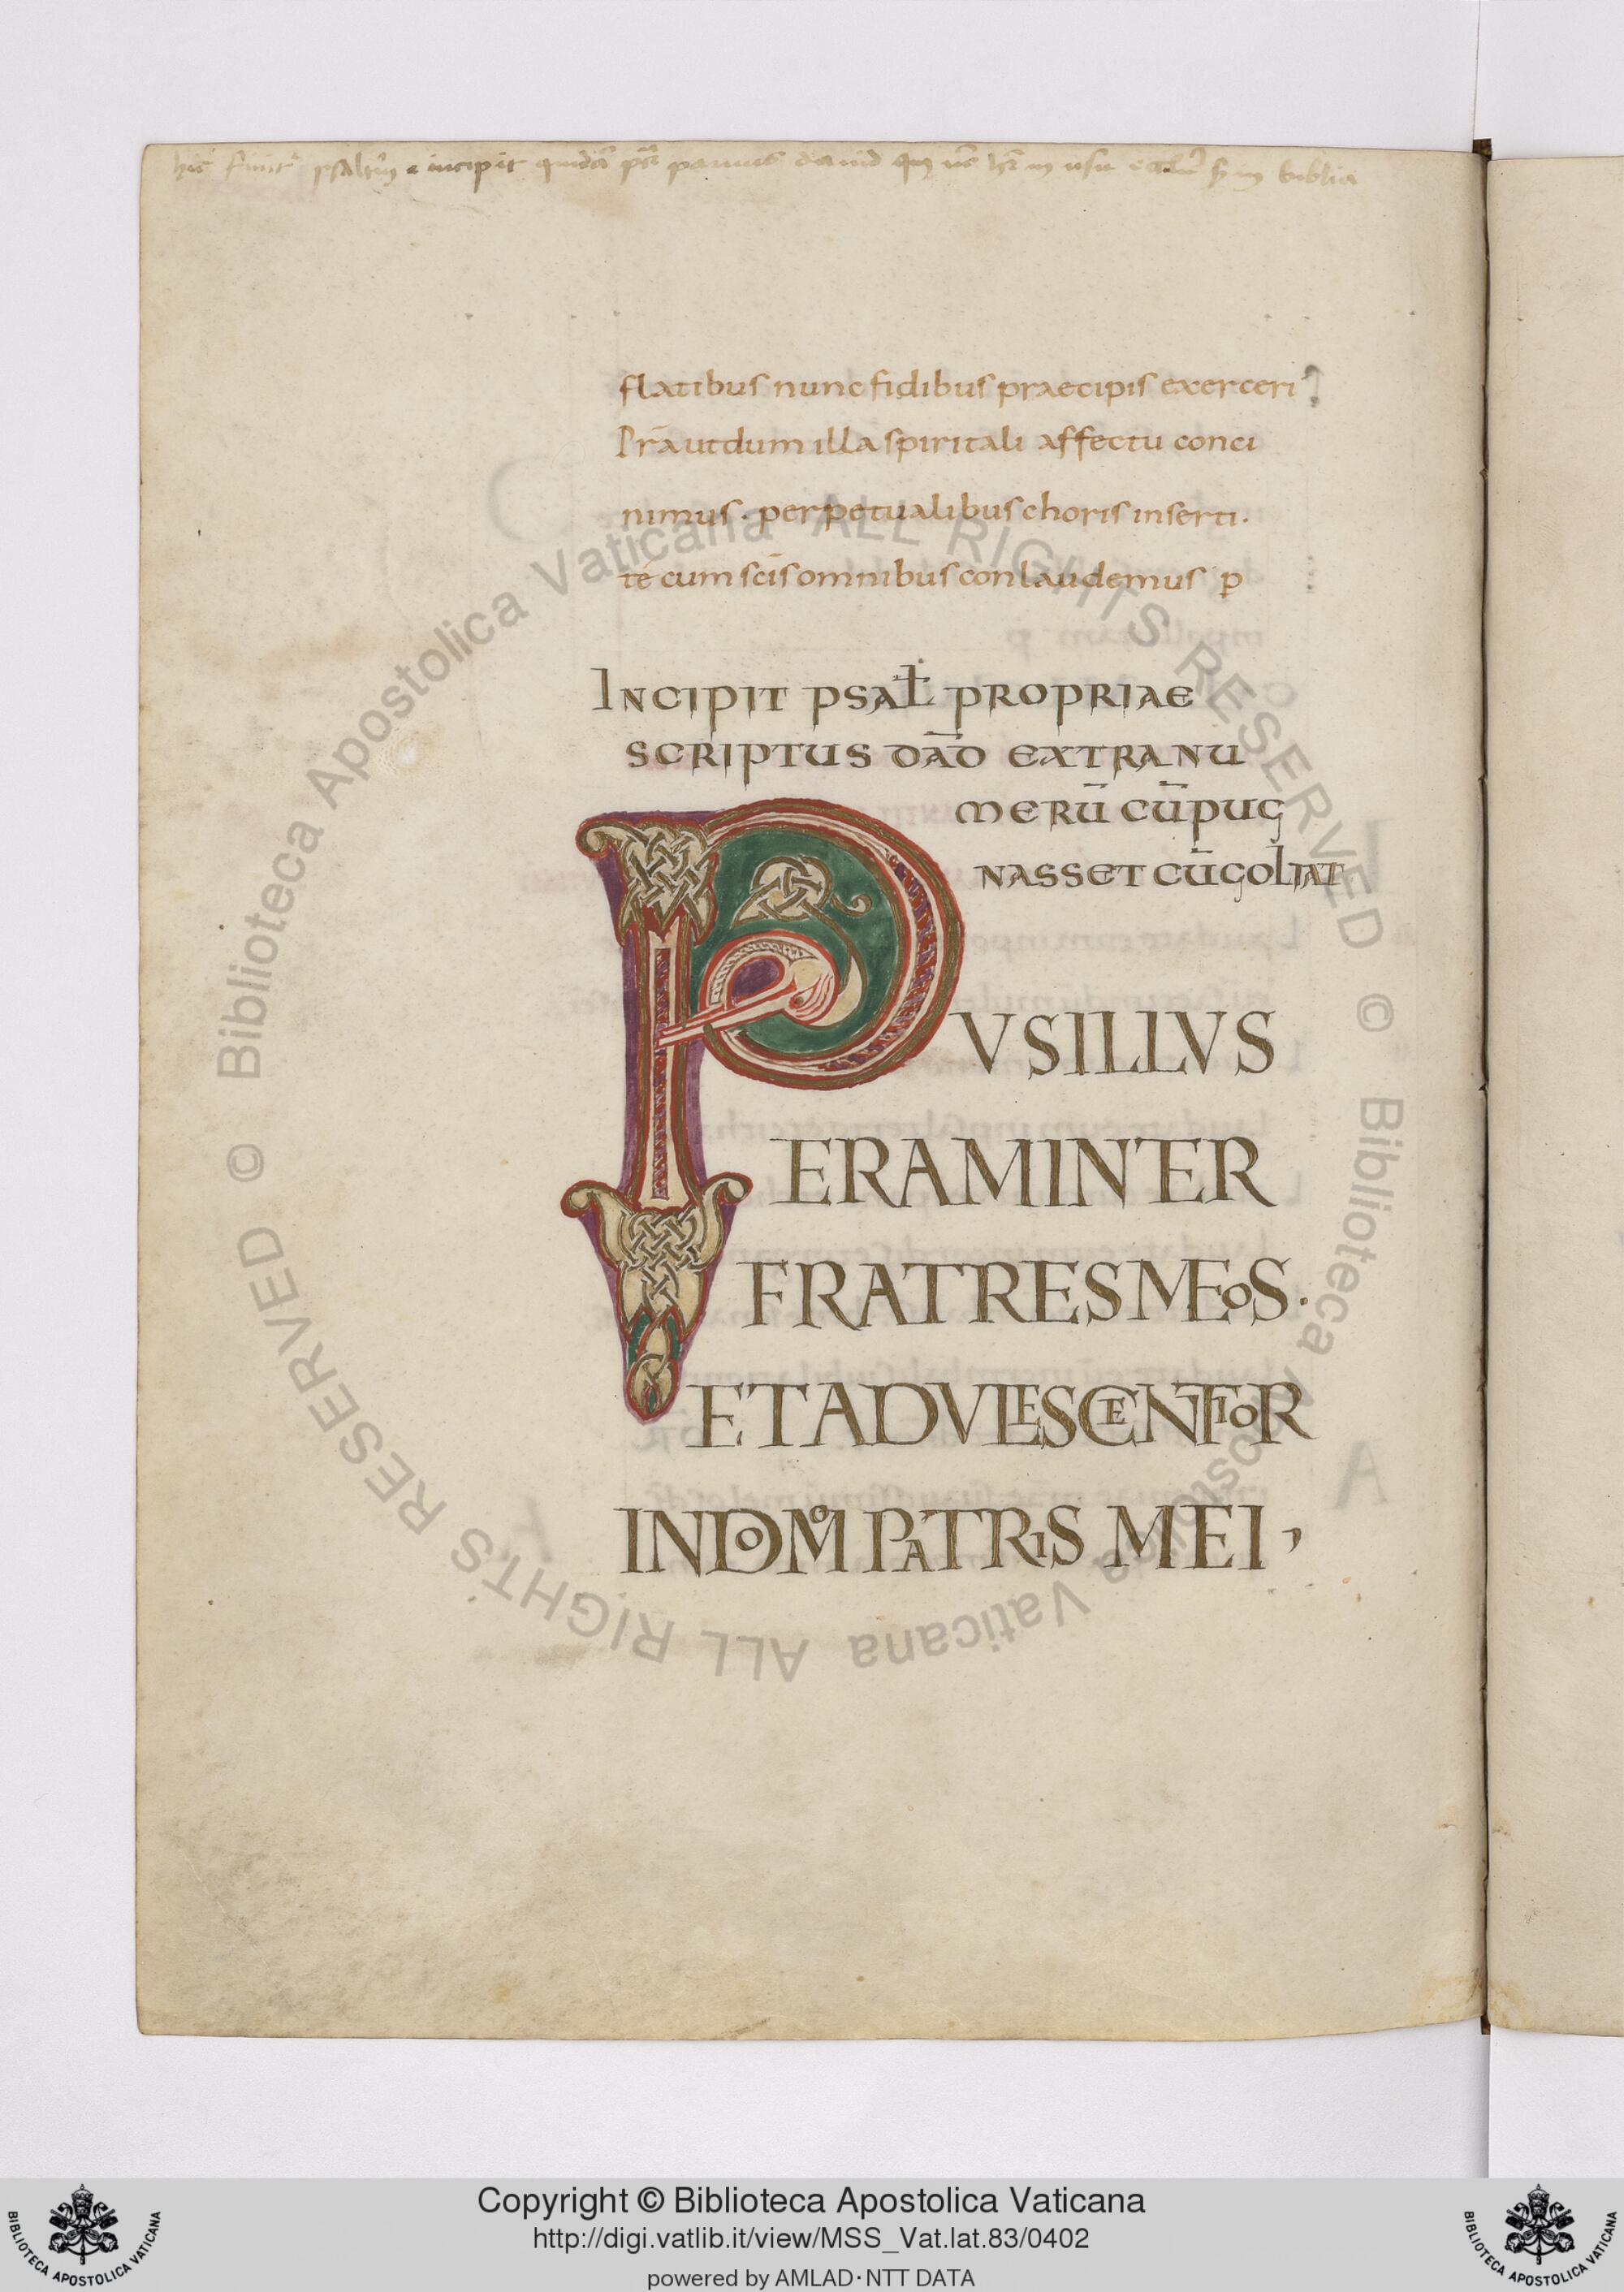 hic finit psalteriū e incipit quidā ps paruus dauid qm nō hr in usu sʒ in biblia
flatibus nunc fidibus praecipis exerceri
Prāutdum illa spiritali affectu conci
nimus· perpetualibus choris inserti·
té cum scīs omnibus conlaudemus p
INCIPIT PSAL̄ PROPRIAE
SCRIPTUS DĀD EXTRA NU
MERŪ CŪ PUG
NASSET CŪ GOLIAT
PUSILLVS
ERAM INTER
FRATRES MEOS·
ET ADVLESCENTIOR
IN DOMO PATRIS MEI,
© Biblioteca Apostolica Vaticana ALL RIGHTS RESERVED © Biblioteca Apostolica Vaticana ALL RIGHTS RESERVED
Copyright © Biblioteca Apostolica Vaticana
http://digi.vatlib.it/view/MSS_Vat.lat.83/0402
powered by AMLAD·NTT DATA
BIBLIOTECA APOSTOLICA VATICANA
BIBLIOTECA APOSTOLICA VATICANA